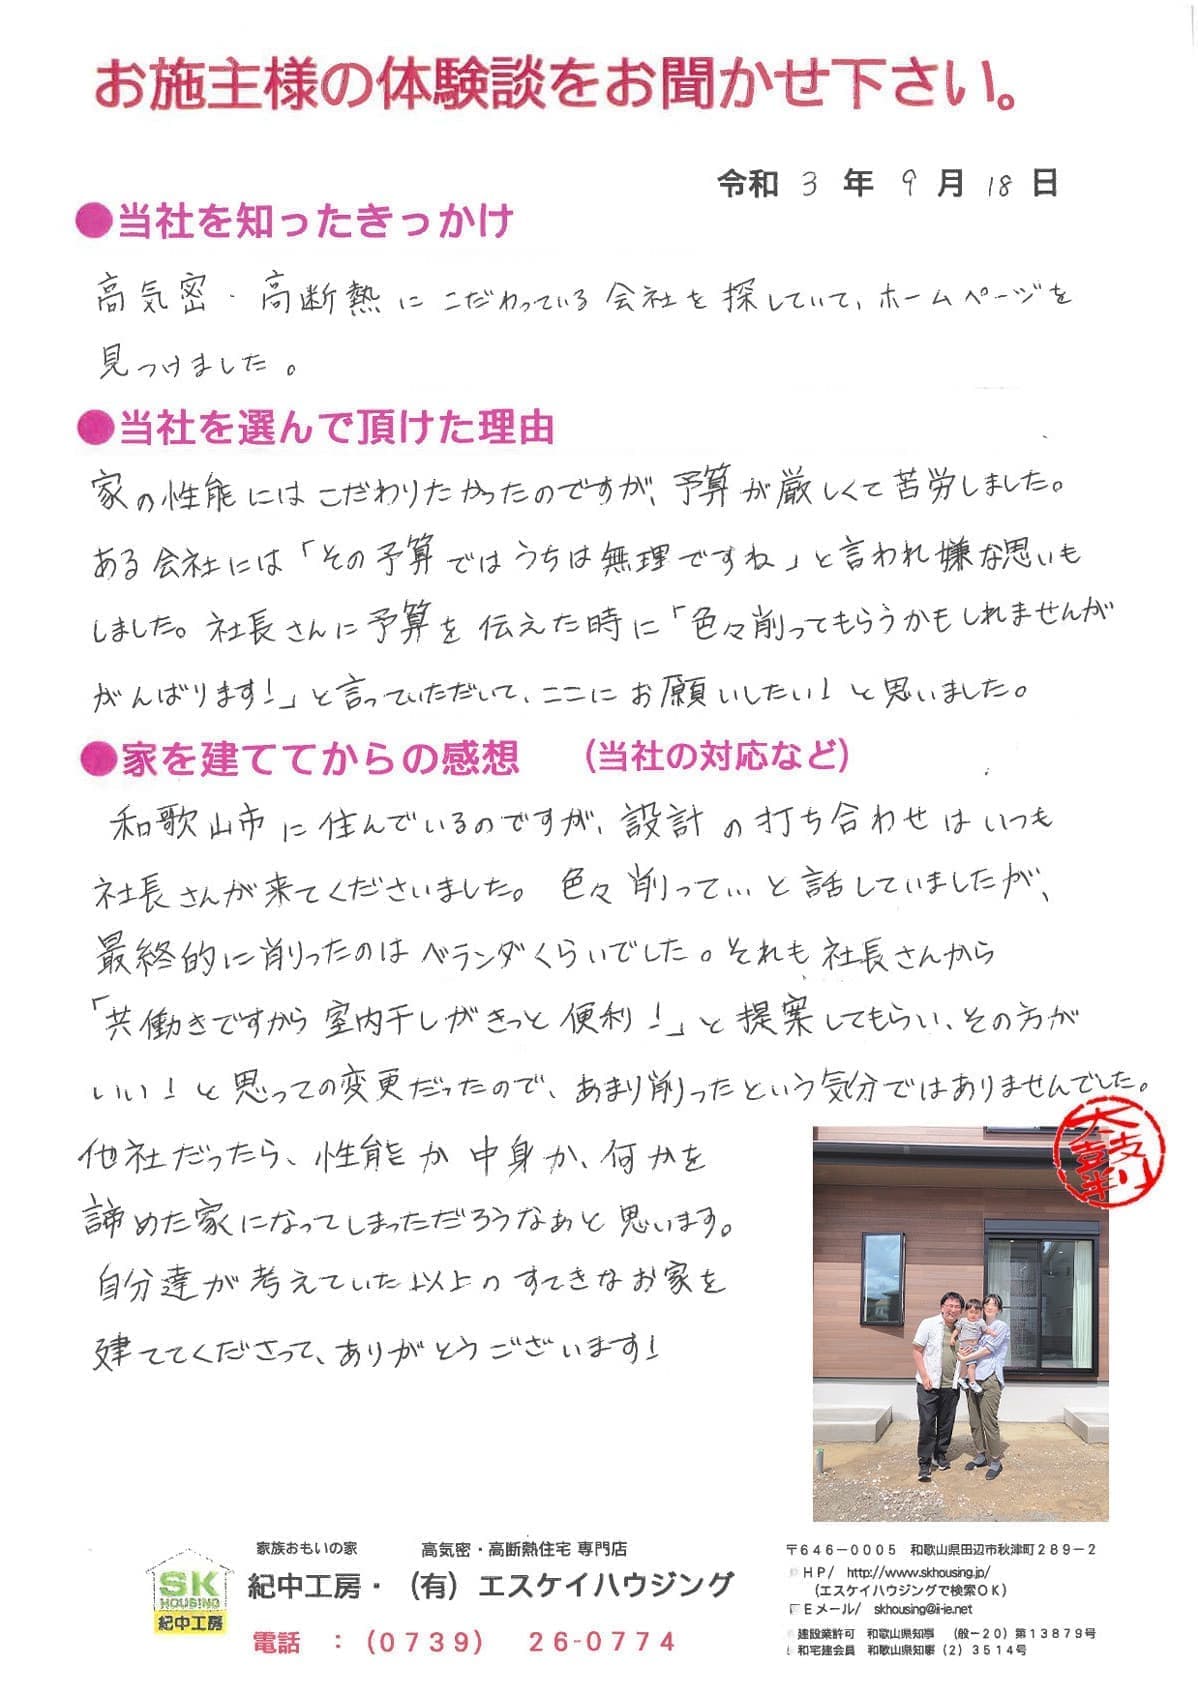 お施主様の体験談をお聞かせ下さい。
令和 3 年 9 月 18 日
●当社を知ったきっかけ
高気密・高断熱にこだわっている会社を探していて、ホームページを
見つけました。
●当社を選んで頂けた理由
家の性能にはこだわりたかったのですが、予算が厳しくて苦労しました。
ある会社には「その予算ではうちは無理ですね」と言われ嫌な思いも
しました。社長さんに予算を伝えた時に「色々削ってもらうかもしれませんが
がんばります!」と言っていただいて、ここにお願いしたい!と思いました。
●家を建ててからの感想 (当社の対応など)
和歌山市に住んでいるのですが、設計の打ち合わせはいつも
社長さんが来てくださいました。色々削って…と話していましたが、
最終的に削ったのはベランダくらいでした。それも社長さんから
「共働きですから室内干しがきっと便利!」と提案してもらい、その方が
いい!と思っての変更だったので、あまり削ったという気分ではありませんでした。
他社だったら、性能か中身か、何かを
諦めた家になってしまっただろうなぁと思います。
自分達が考えていた以上のすてきなお家を
建ててくださって、ありがとうございます!
太鼓判
家族おもいの家 高気密・高断熱住宅 専門店
SK HOUSING 紀中工房
紀中工房・(有)エスケイハウジング
電話 :(0739) 26-0774
〒646-0005 和歌山県田辺市秋津町289-2
HP/ http://www.skhousing.jp/
(エスケイハウジングで検索OK)
Eメール/ skhousing@ii-ie.net
建設業許可 和歌山県知事 (般-20)第13879号
和宅建会員 和歌山県知事(2)3514号